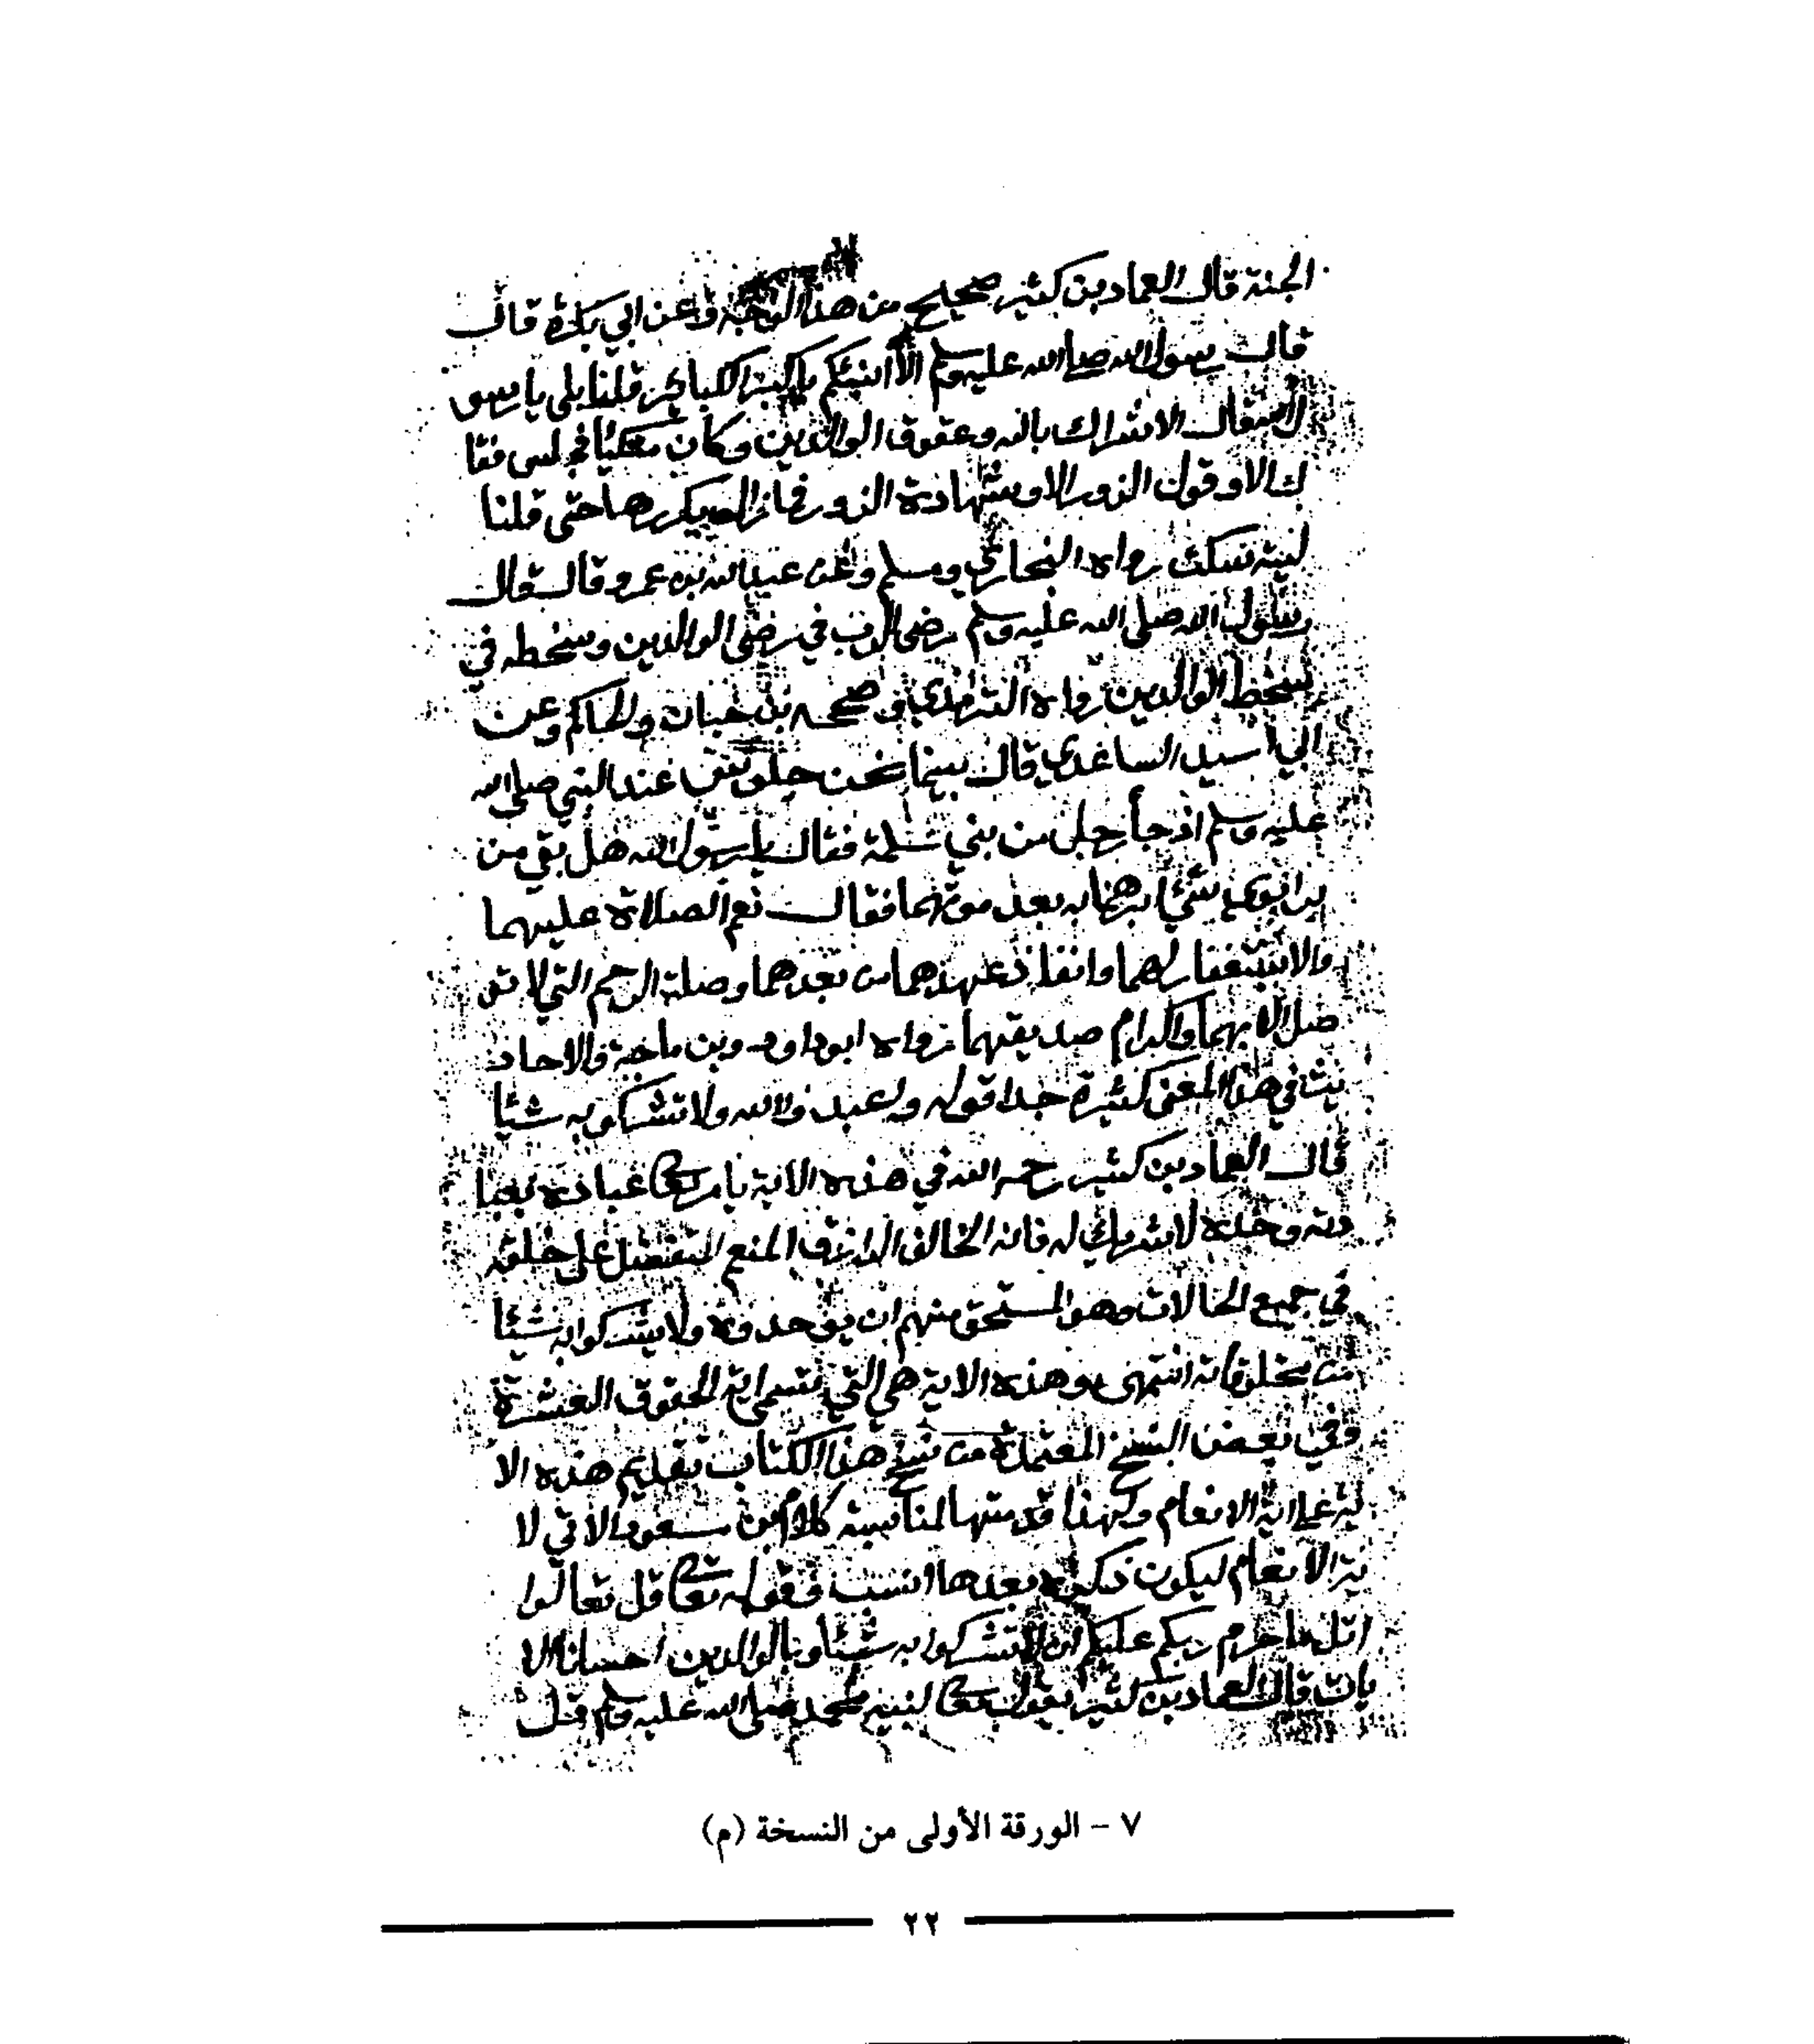 الجنة قال العماد بن كثير صحيح من هذا الوجه وعن ابي بكرة قال
قال رسول الله صلى الله عليه وسلم الا انبئكم باكبر الكبائر قلنا بلى يا رسو
ل الله قال الاشراك بالله وعقوق الوالدين وكان متكئا فجلس فقا
ل الا وقول الزور الا وشهادة الزور فما زال يكررها حتى قلنا
ليته سكت رواه البخاري ومسلم وعن عبد الله بن عمرو قال قال
رسول الله صلى الله عليه وسلم رضى الرب في رضى الوالدين وسخطه في
سخط الوالدين رواه الترمذي وصححه بن حبان والحاكم وعن
ابي اسيد الساعدي قال بينما نحن جلوس عند النبي صلى الله
عليه وسلم اذ جأ رجل من بني سلمة فقال يا رسول الله هل بقي من
بر ابوي شيئ ابرهما به بعد موتهما فقال نعم الصلاة عليهما
والاستغفار لهما وانفاذ عهدهما من بعدهما وصلة الرحم التي لا تو
صل الا بهما واكرام صديقهما رواه ابوداود وبن ماجة والاحاد
يث في هذا المعنى كثيرة جدا قوله واعبدوا الله ولا تشركو به شيئا
قال العماد بن كثير رحمه الله في هذه الاية يامر تعا عباده بعبا
دته وحده لا شريك له فانه الخالق الرازق المنعم المتفضل على خلقه
في جميع الحالات وهو المستحق منهم ان يوحدوه ولا يشركوا به شيئا
من مخلوقاته انتهى وهذه الاية هي التي تسمى اية الحقوق العشرة
وفي بعض النسخ المعتمدة من نسخ هذا الكتاب تقديم هذه الا
ية على اية الانعام ولهذا قدمتها لمناسبة كلام بن مسعود الاتي لا
ية الانعام ليكون ذكره بعدها انسب وقوله تعا قل تعالوا
اتل ما حرم ربكم عليكم ان لا تشركوا به شيئا وبالوالدين احسانا الا
يات قال العماد بن كثير يقول تعا لنبيه محمد صلى الله عليه وسلم قل
٧ - الورقة الأولى من النسخة (م)
٢٢